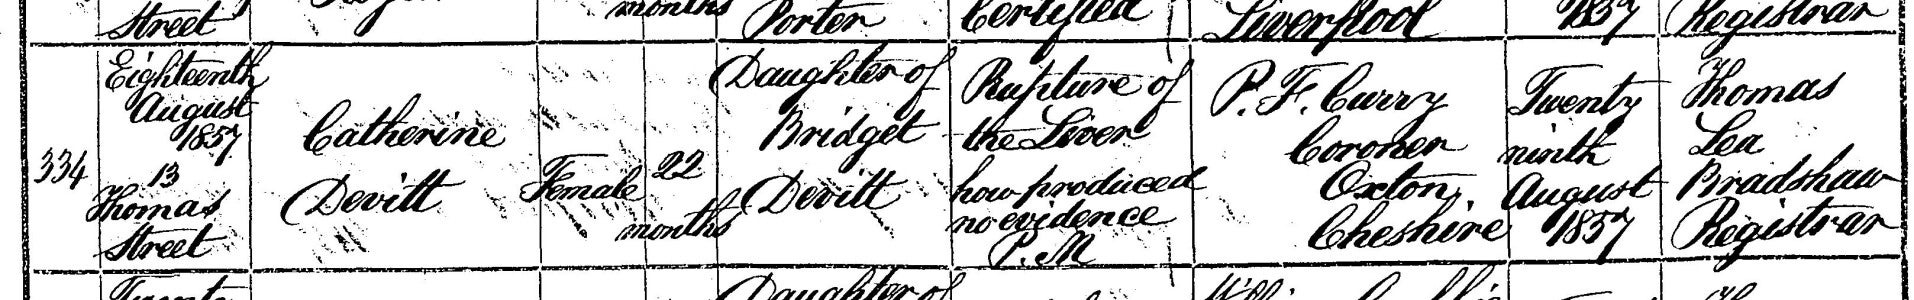 Street
months
Porter
Certified
Liverpool
1857
Registrar
334
Eighteenth
August
1857
13
Thomas
Street
Catherine
Devitt
Female
22
months
Daughter of
Bridget
Devitt
Rupture of
the Liver
how produced
no evidence
P.M
P. F. Curry
Coroner
Oxton
Cheshire
Twenty
ninth
August
1857
Thomas
Lea
Bradshaw
Registrar
Daughter of